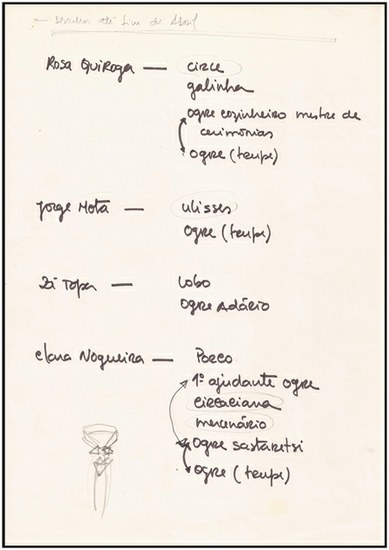 até Fim de Abril
Rosa Quiroga — circe
galinha
ogre cozinheiro mestre de
cerimónias
ogre (troupe)
Jorge Mota — ulisses
ogre (troupe)
Zé Topa — Lobo
ogre Adário
Clara Nogueira — Porco
1º ajudante ogre
circaciana
mercenário
ogre
ogre (troupe)